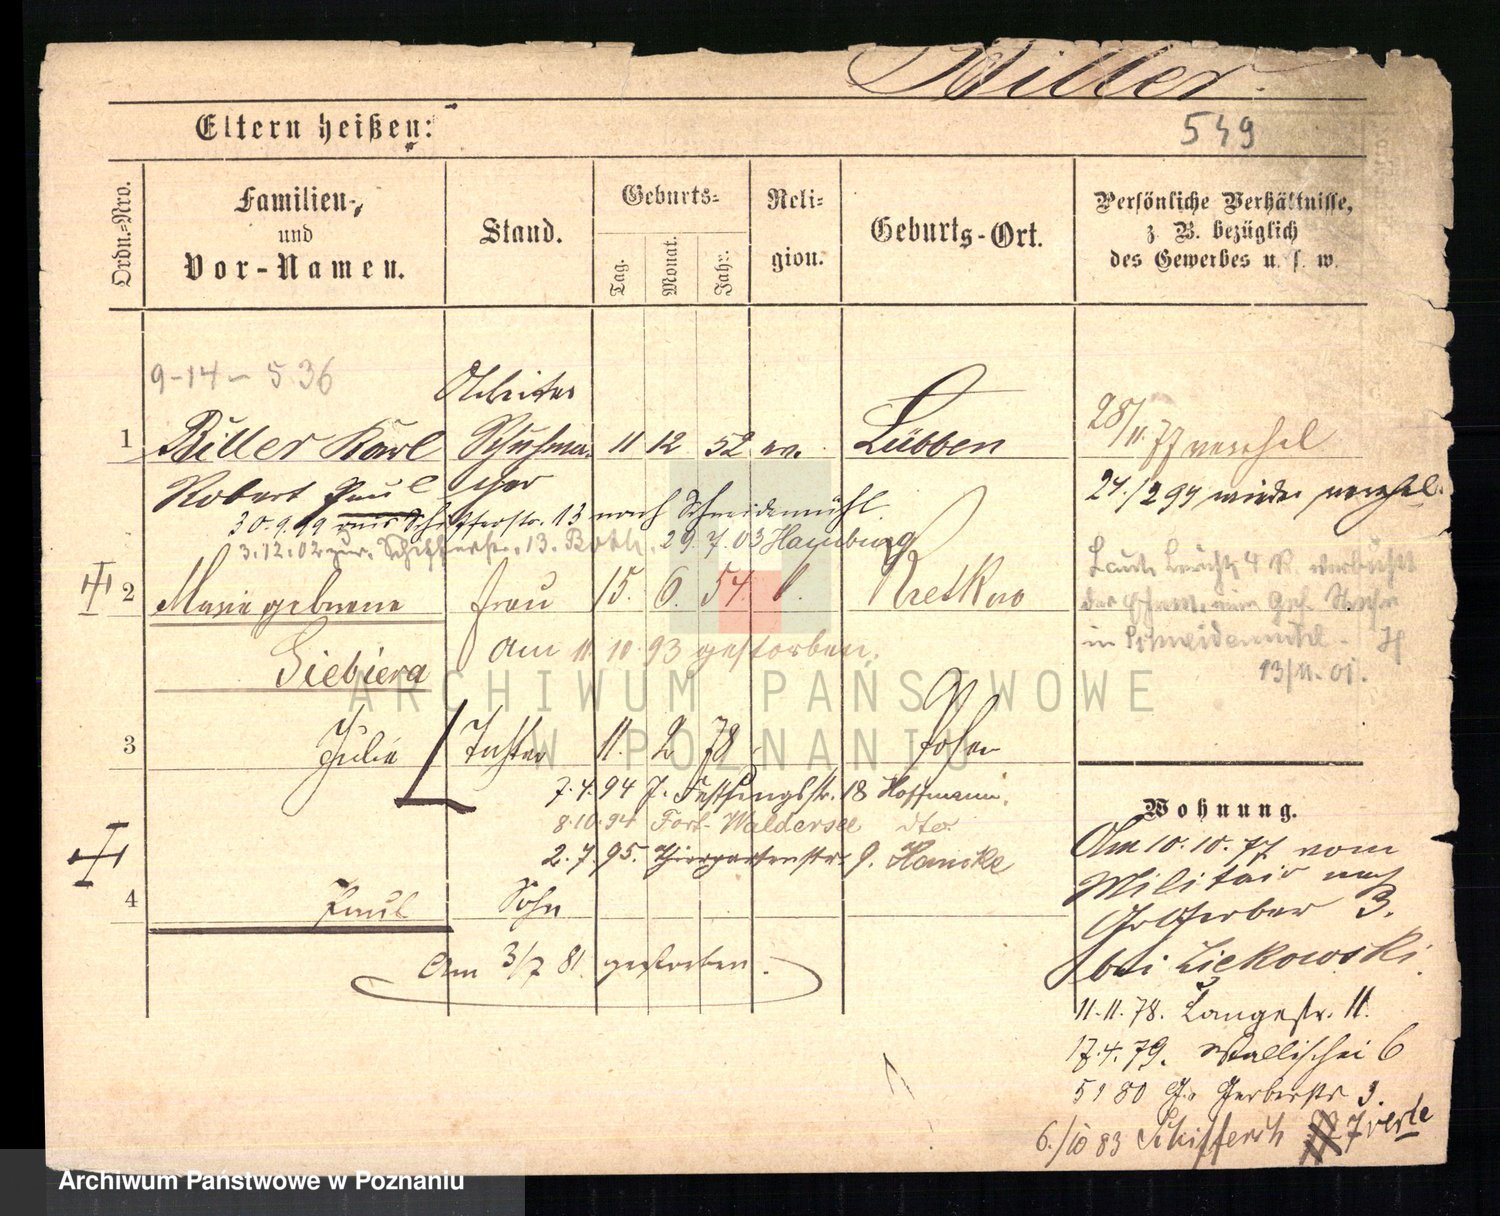 Biller.
Eltern heißen:
549
Ordn.-Nro.
Familien-
und
Vor-Namen.
Stand.
Geburts-
Tag.
Monat.
Jahr.
Reli-
gion.
Geburts-Ort.
Persönliche Verhältnisse,
z. B. bezüglich
des Gewerbes u. s. w.
9-14- 536
Arbeiter
1 Biller Karl Schuhma- 11 12 52 ev. Lübben
28/11.77 verehel
Robert Paul cher
24./2 94 wieder verehel.
30.9.99 aus Schifferstr. 13 nach Schneidemühl.
3.12.02 zur. Schifferstr. 13. 29.7.03 Hamburg
2 Marie geborene Frau 15. 6. 54. Kretkow
Giebiera
am 11.10.93 gestorben.
in Schneidemühl
13/11.01.
3 Julie Tochter 11. 2 78 Posen
7.4.94 J. Festungsstr. 18 Hoffmann.
8.10.94 Fort Waldersee dto.
2.7.95. Thiergartenstr. 9. Hancke
4 Paul Sohn
Am 3/7 81 gestorben.
Wohnung.
Am 10.10.77 vom
Militair nach
Gr Gerber 3.
bei Liekowski.
11.11.78. Langestr. 11.
17.4.79. Wallischei 6
5 1 80 Gr. Gerberstr 3.
6./10 83 Schifferstr 7
ARCHIWUM PAŃSTWOWE
W POZNANIU
Archiwum Państwowe w Poznaniu